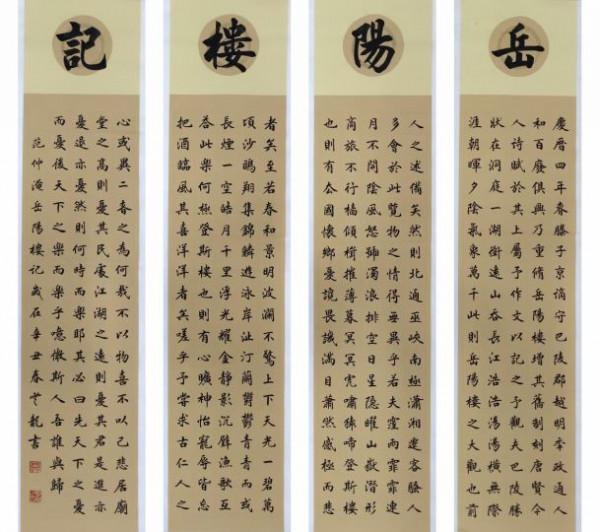 岳陽樓記
慶曆四年春滕子京謫守巴陵郡越明年政通人
和百廢俱興乃重脩岳陽樓增其舊制刻唐賢今
人詩賦於其上屬予作文以記之予觀夫巴陵勝
狀在洞庭一湖銜遠山吞長江浩浩湯湯橫無際
涯朝暉夕陰氣象萬千此則岳陽樓之大觀也前
人之述備矣然則北通巫峽南極瀟湘遷客騷人
多會於此覽物之情得無異乎若夫霪雨霏霏連
月不開陰風怒號濁浪排空日星隱曜山嶽潛形
商旅不行檣傾楫摧薄暮冥冥虎嘯猿啼登斯樓
也則有去國懷鄉憂讒畏譏滿目蕭然感極而悲
者矣至若春和景明波瀾不驚上下天光一碧萬
頃沙鷗翔集錦鱗遊泳岸芷汀蘭鬱鬱青青而或
長煙一空皓月千里浮光耀金靜影沉璧漁歌互
答此樂何極登斯樓也則有心曠神怡寵辱皆忘
把酒臨風其喜洋洋者矣嗟乎予嘗求古仁人之
心或異二者之為何哉不以物喜不以己悲居廟
堂之高則憂其民處江湖之遠則憂其君是進亦
憂退亦憂然則何時而樂耶其必曰先天下之憂
而憂後天下之樂而樂乎噫微斯人吾誰與歸
范仲淹岳陽樓記歲在辛丑春龍書